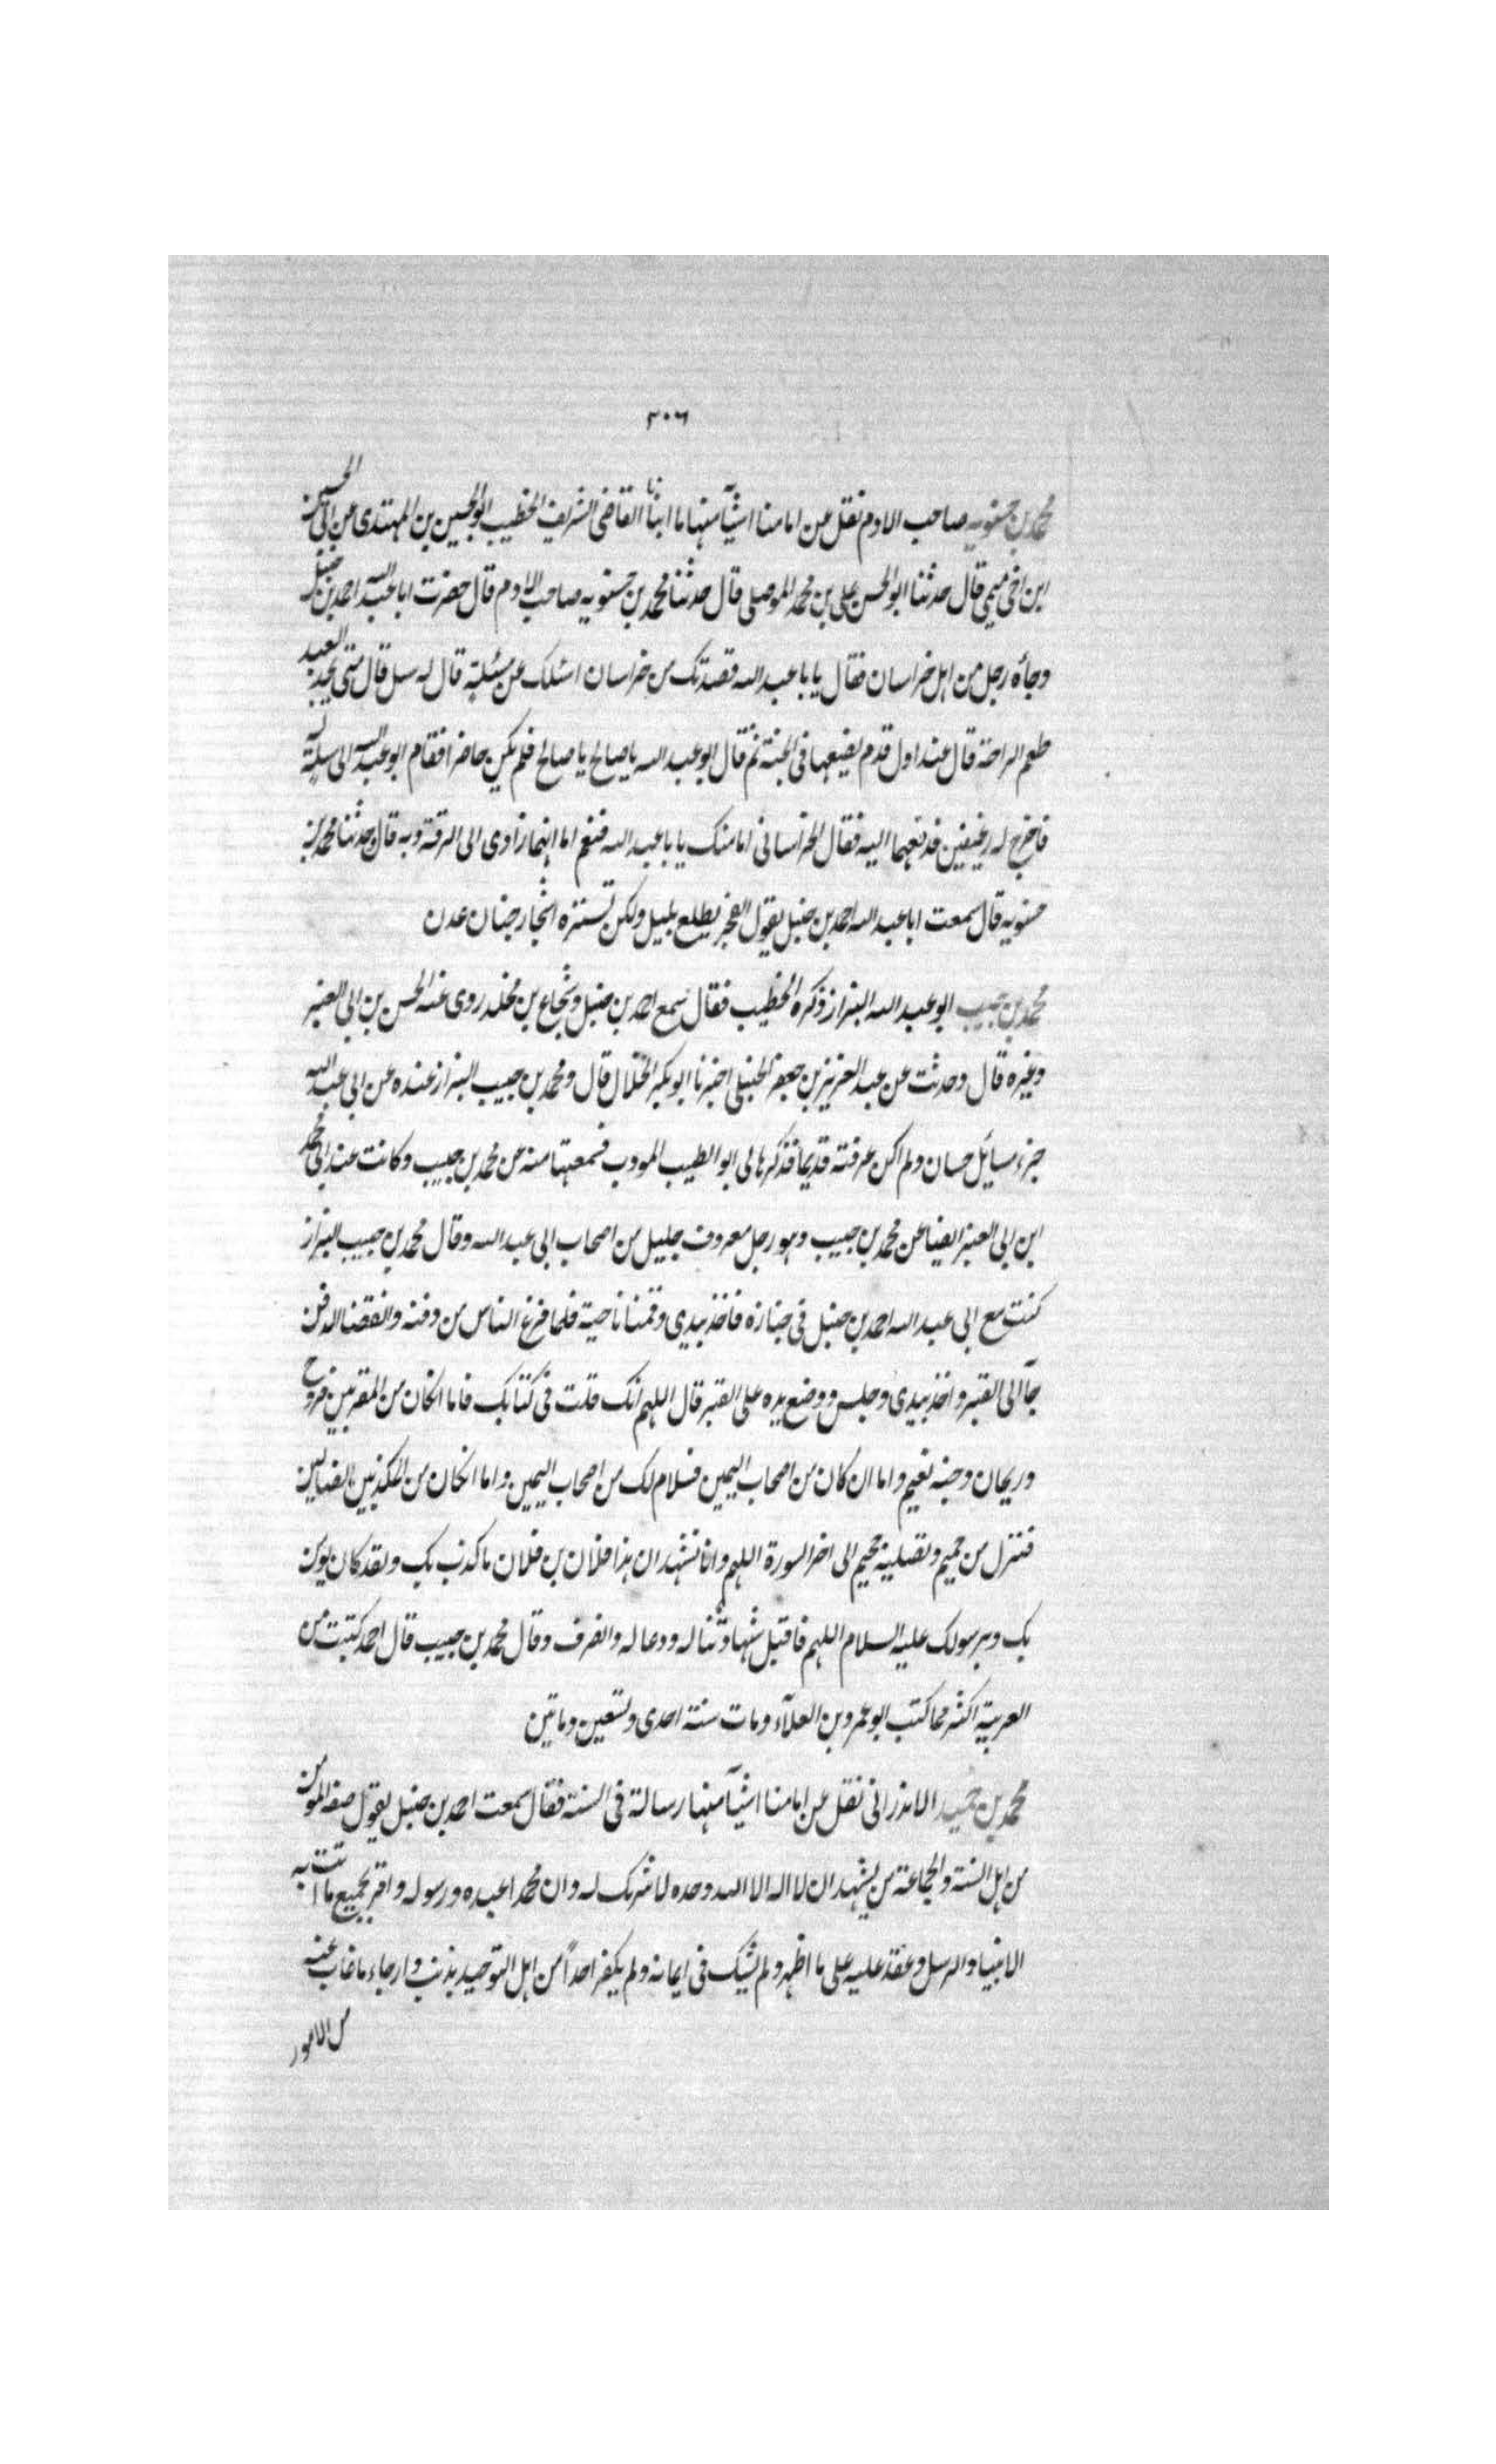 ٣٠٦
محمد بن حسنويه صاحب الادم نقل عن امامنا اشيآ منها ما انبأنا القاضى الشريف الخطيب ابو الحسين بن المهتدى عن ابى الحسين
ابن اخى ميمى قال حدثنا ابو الحسن على بن محمد الموصلى قال حدثنا محمد بن حسنويه صاحب الادم قال حضرت ابا عبد الله احمد بن حنبل
وجأه رجل من اهل خراسان فقال يا با عبد الله قصدتك من خراسان اسئلك عن مسئلة قال له سل قال متى يجد العبد
طعم الراحة قال عند اول قدم يضعها فى الجنة ثم قال ابو عبد الله يا صالح يا صالح فلم يكن حاضرا فقام ابو عبد الله الى سلة له
فاخرج له رغيفين فدفعهما اليه فقال الخراسانى امامنك يا با عبد الله فنعم اما انهما زادى الى الرقة وبه قال حدثنا محمد بن
حسنويه قال سمعت ابا عبد الله احمد بن حنبل يقول الفجر يطلع بليل ولكن تستره اشجار جنان عدن
محمد بن حبيب ابو عبد الله البزاز ذكره الخطيب فقال سمع احمد بن حنبل وشجاع بن مخلد روى عنه الحسن بن ابى العنبر
وغيره قال وحدثت عن عبد العزيز بن جعفر الحنبلى اخبرنا ابو بكر الخلال قال ومحمد بن حبيب البزاز عنده عن ابى عبد الله
جزء مسايل حسان ولم اكن عرفته قديما فذكرها لى ابو الطيب المودب فسمعتها منه عن محمد بن حبيب وكانت عند ابى محمد
ابن ابى العنبر ايضا عن محمد بن حبيب وهو رجل معروف جليل من اصحاب ابى عبد الله وقال محمد بن حبيب البزاز
كنت مع ابى عبد الله احمد بن حنبل فى جنازه فاخذ بيدى وقمنا ناحية فلما فرغ الناس من دفنه وانقضا الدفن
جآ الى القبر واخذ بيدى وجلس ووضع يده على القبر قال اللهم انك قلت فى كتابك فاما انكان من المقربين فروح
وريحان وجنه نعيم واما ان كان من اصحاب اليمين فسلام لك من اصحاب اليمين واما انكان من المكذبين الضالين
فنزل من حميم وتصلية جحيم الى اخر السورة اللهم وانا نشهد ان هذا فلان بن فلان ما كذب بك ولقد كان يومن
بك وبرسولك عليه السلام اللهم فاقبل شهادتنا له ودعا له وانصرف وقال محمد بن حبيب قال احمد كتبت من
العربية اكثر مما كتب ابو عمرو بن العلآء ومات سنة احدى وتسعين وماتين
محمد بن حميد الاندرانى نقل عن امامنا اشيآ منها رسالة فى السنة فقال سمعت احمد بن حنبل يقول صفه المومن
من اهل السنة والجماعة من يشهد ان لا اله الا الله وحده لا شريك له وان محمدا عبده ورسوله واقر بجميع ما اتت به
الانبيا والرسل وعقد عليه على ما اظهر ولم يشك فى ايمانه ولم يكفر احداً من اهل التوحيد بذنب وارجاء ما غاب عنه
من الامور